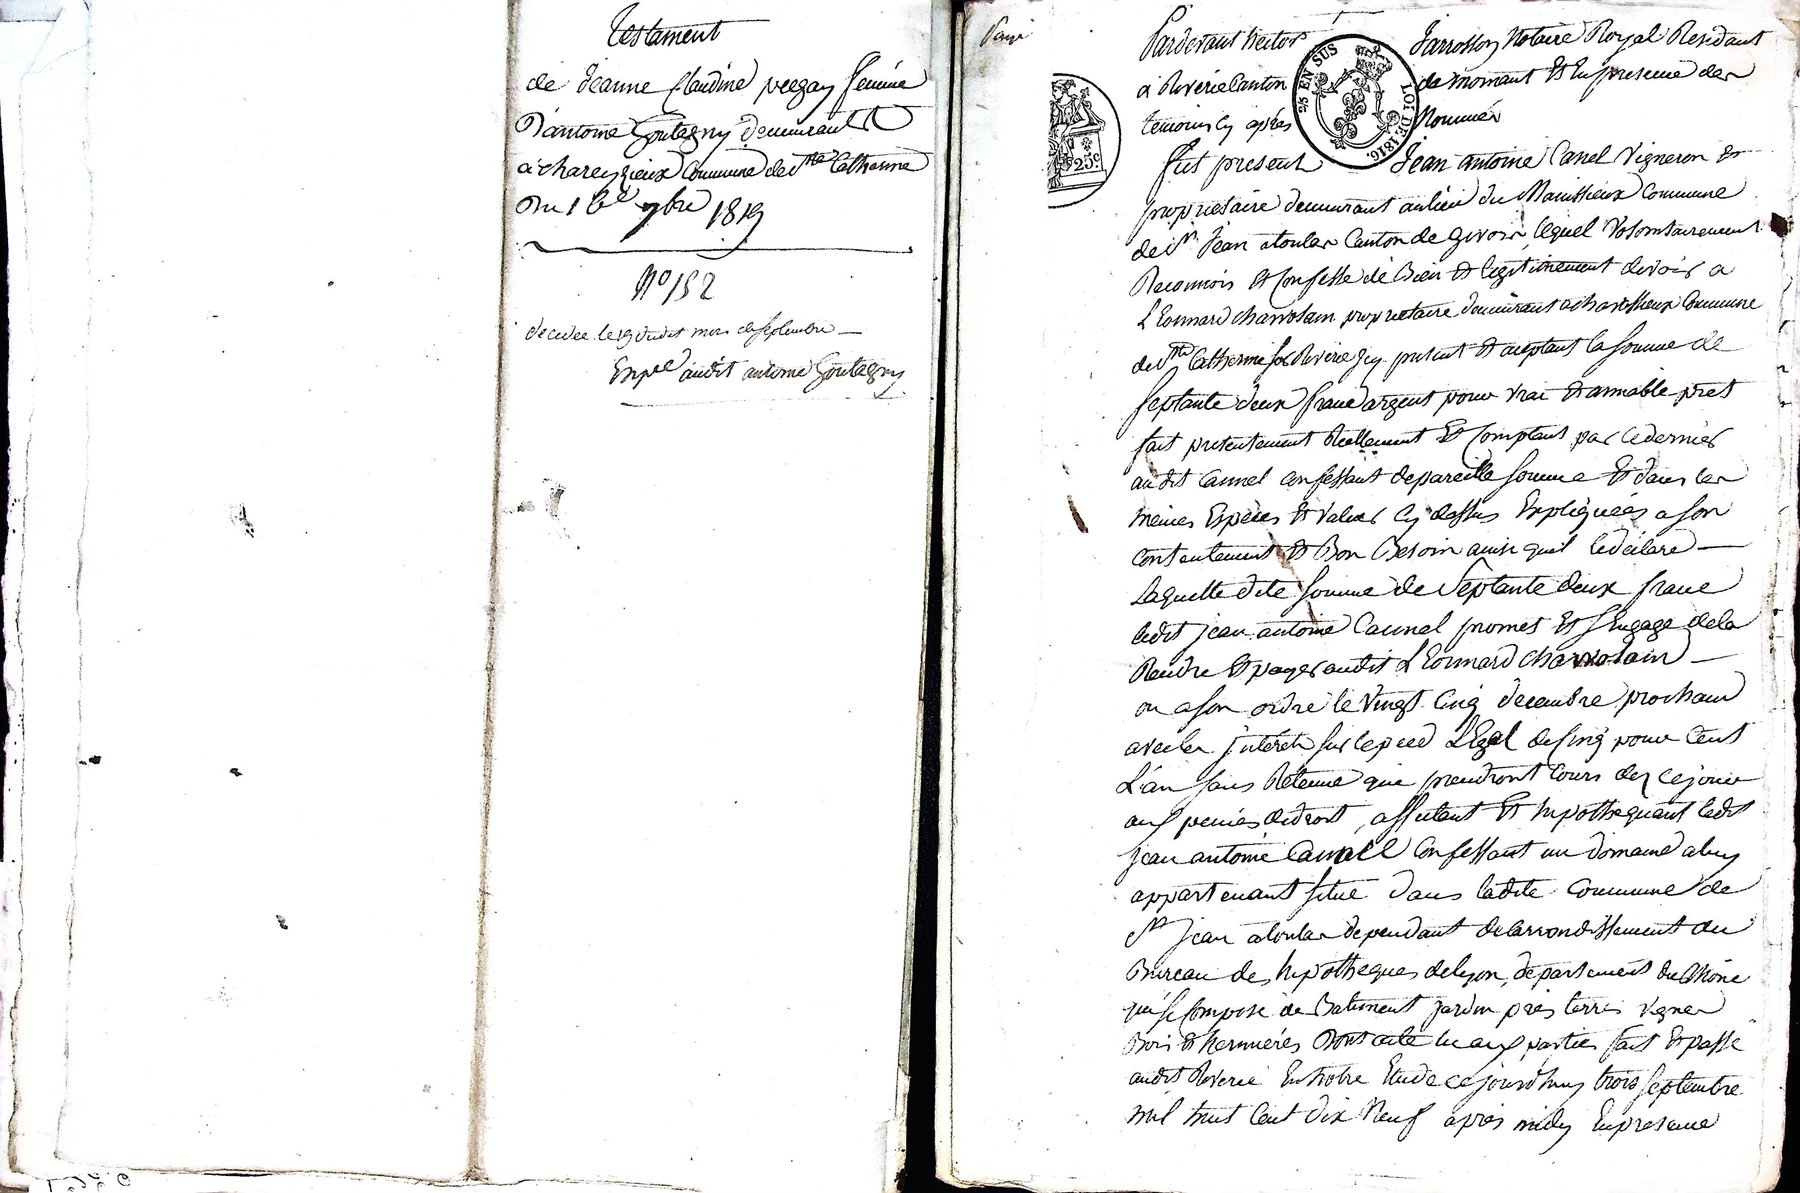 Testament
de Jeanne Claudine pvezay femme
D'antoine Goutagny Demeurant
a chareyzieux Commune de Ste Catherine
Du 1er 7bre 1819
No 152
decedée le 19 dudit mois de septembre
Expé audit antoine Goutagny
payé
Pardevant hector Jarrosson Notaire Royal Residant
a Riverie Canton de mornant Et En presence des
temoins Cy après Nommés
25 EN SUS
LOI DE 1816.
25c
fut present Jean antoine Canel Vigneron et
propriétaire demeurant au lieu du Manissieux Commune
de St Jean atoulas Canton de Givors lequel Volontairement
Reconnois Et Confesse de Bien Et legitimement devoir a
LEonnard charvolain proprietaire demeurant a chartissieux Commune
de Ste Catherine sur Riverie Jcy present Et aceptant la somme de
septante deux franc argent pour vrai Et amiable prest
fait presentement Réellement Et Comptant par ce dernier
audit Cannel Confessant de pareille somme Et dans les
meines Espèces Et Valeur Cy dessus Expliquées a son
Contentement Et Bon Besoin ainsi quil le déclare
Laquelle dite somme de Septante deux franc
ledit jean antoine Cannel promet Et sEngage de la
Rendre Et payer audit LEonnard charvolain
ou a son ordre le Vingt Cinq decembre prochain
avec les jnteréts sur le pied LEgal de sinq pour Cent
L'an sans Retenue qui prendront Cours dez ce jour
aux peines de droit, affectant Et hypothequant ledit
jean antoine Cannel Confessant un domaine a luy
appartenant situé dans ladite Commune de
St jean atoulas dependant de larrondissement du
Bureau des hypotheques de lyon, departement du Rhône
qui se Compose de Batiment jardin près terres vignes
Bois Et hermières Dont acte lu aux parties fait Et passé
audit Riverie En notre Etude ce jourdhuy trois septembre
mil huit Cent dix Neuf après midy En presence